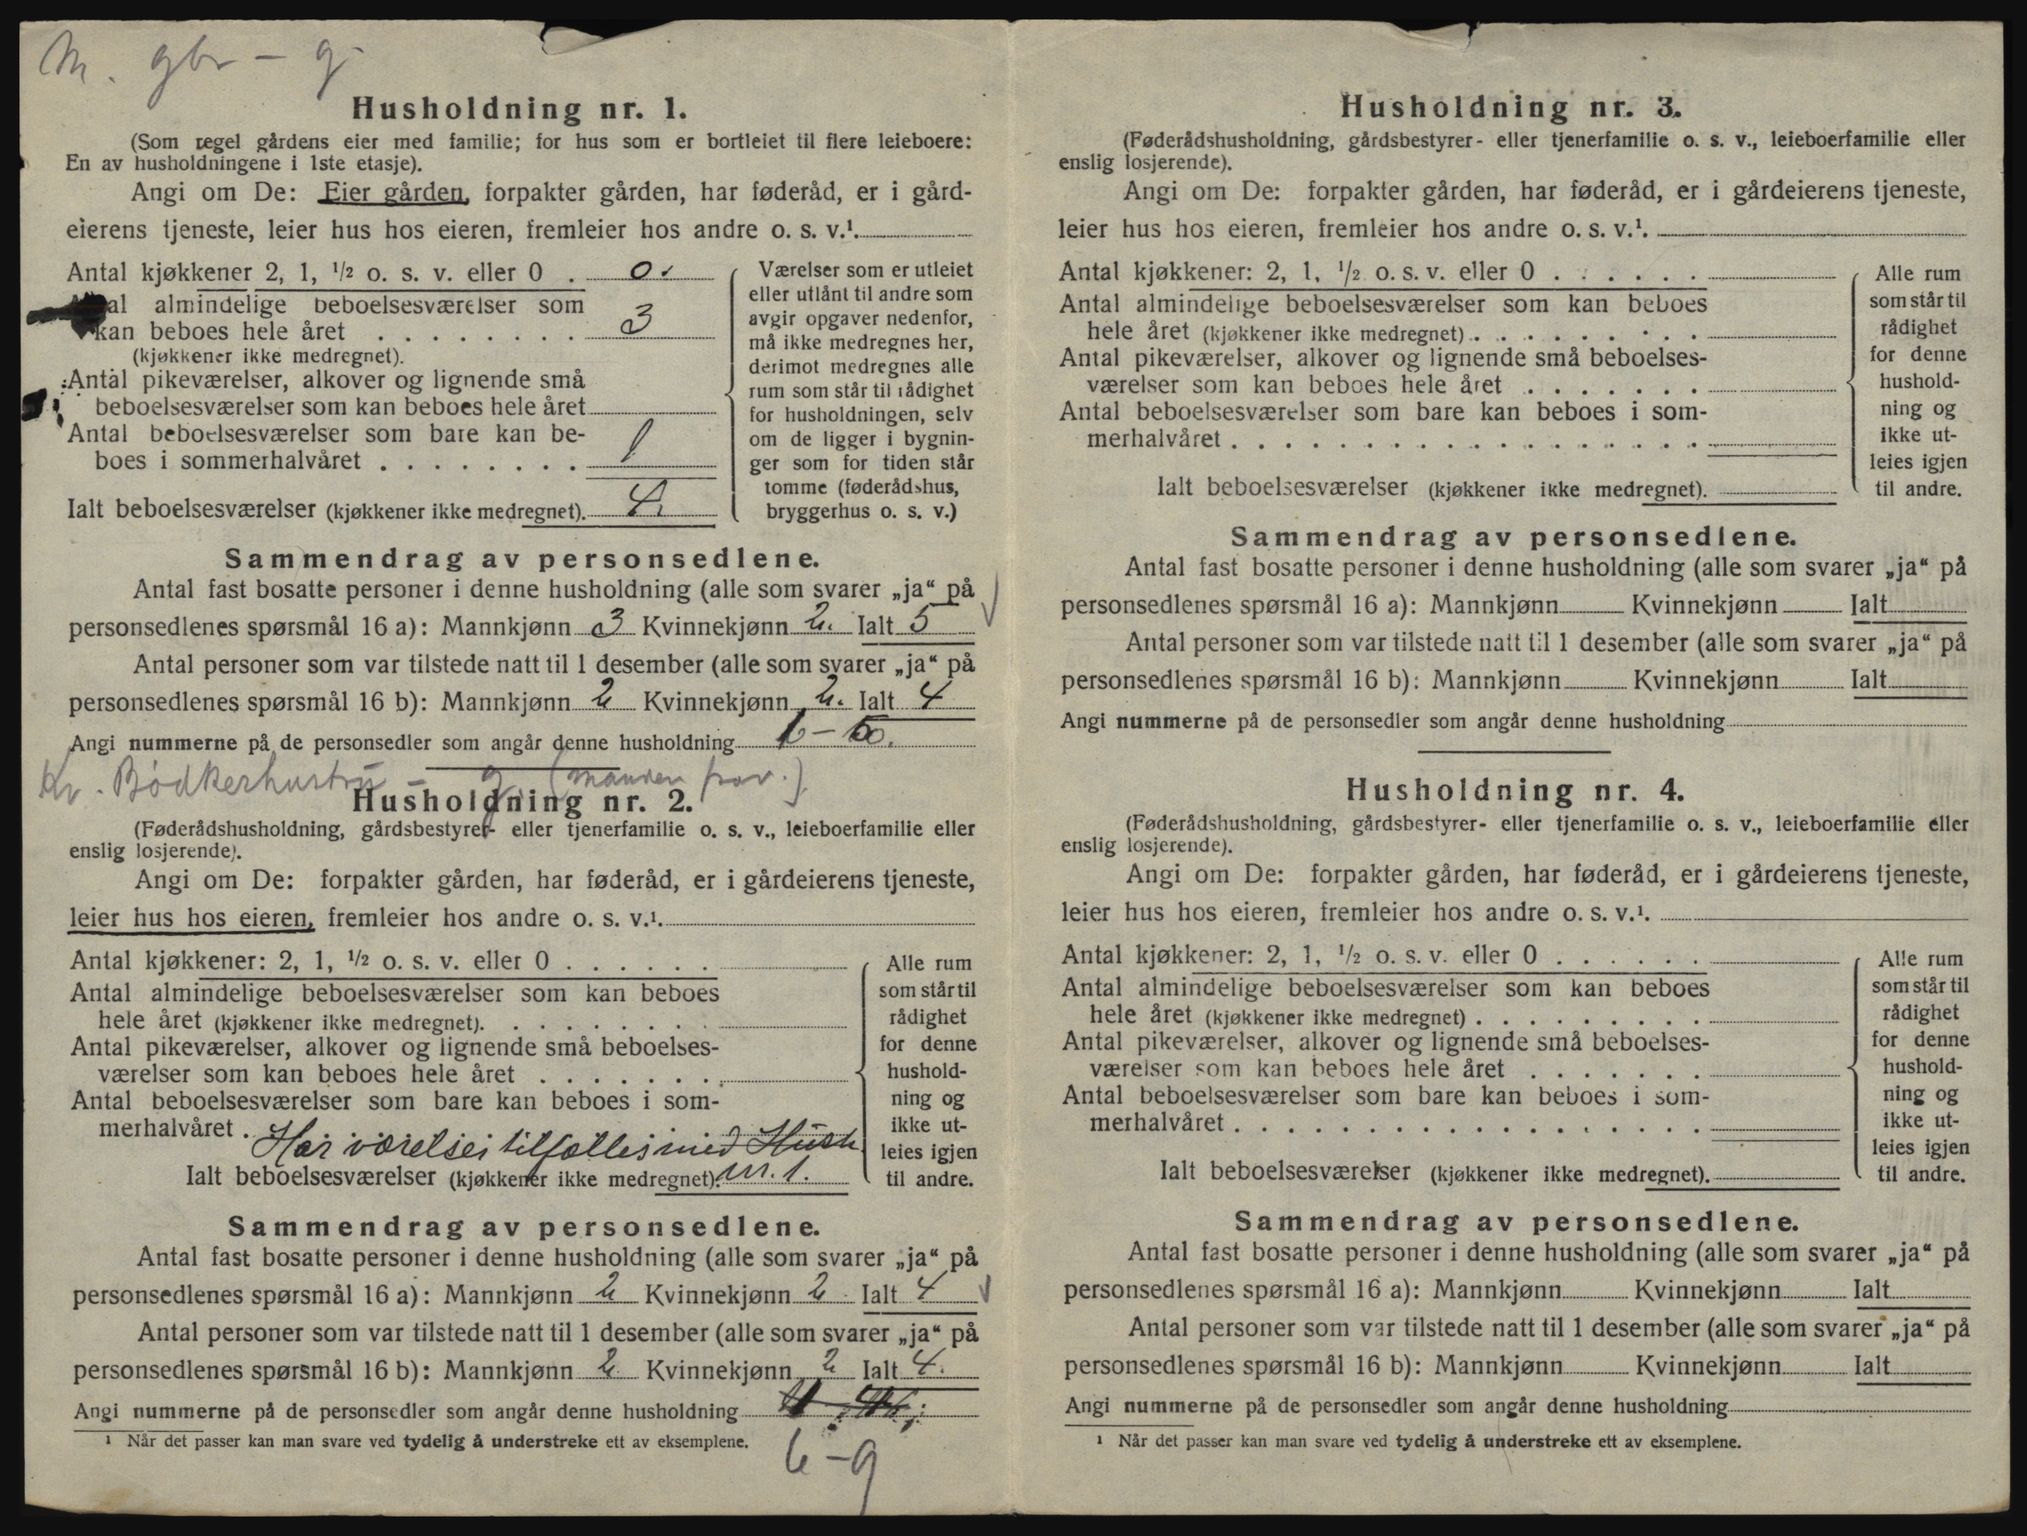 M. gbr – g.
Husholdning nr. 1.
(Som regel gårdens eier med familie; for hus som er bortleiet til flere leieboere:
En av husholdningene i 1ste etasje).
Angi om De: Eier gården, forpakter gården, har føderåd, er i gård-
eierens tjeneste, leier hus hos eieren, fremleier hos andre o. s. v.¹.
Antal kjøkkener 2, 1, ½ o. s. v. eller 0 . 0.
almindelige beboelsesværelser som
kan beboes hele året . . . . . . . . 3
(kjøkkener ikke medregnet).
Antal pikeværelser, alkover og lignende små
beboelsesværelser som kan beboes hele året
Antal beboelsesværelser som bare kan be-
boes i sommerhalvåret . . . . . . . . 1
Ialt beboelsesværelser (kjøkkener ikke medregnet). 4.
Værelser som er utleiet
eller utlånt til andre som
avgir opgaver nedenfor,
må ikke medregnes her,
derimot medregnes alle
rum som står til rådighet
for husholdningen, selv
om de ligger i bygnin-
ger som for tiden står
tomme (føderådshus,
bryggerhus o. s. v.)
Sammendrag av personsedlene.
Antal fast bosatte personer i denne husholdning (alle som svarer „ja“ på
personsedlenes spørsmål 16 a): Mannkjønn 3 Kvinnekjønn 2. Ialt 5
Antal personer som var tilstede natt til 1 desember (alle som svarer „ja“ på
personsedlenes spørsmål 16 b): Mannkjønn 2 Kvinnekjønn 2. Ialt 4
Angi nummerne på de personsedler som angår denne husholdning 1–5.
Kv. Bødkerhustru – g. (manden frav.)
Husholdning nr. 2.
(Føderådshusholdning, gårdsbestyrer- eller tjenerfamilie o. s. v., leieboerfamilie eller
enslig losjerende).
Angi om De: forpakter gården, har føderåd, er i gårdeierens tjeneste,
leier hus hos eieren, fremleier hos andre o. s. v.¹.
Antal kjøkkener: 2, 1, ½ o. s. v. eller 0 . . . . . .
Antal almindelige beboelsesværelser som kan beboes
hele året (kjøkkener ikke medregnet). . . . . . . . .
Antal pikeværelser, alkover og lignende små beboelses-
værelser som kan beboes hele året . . . . . . .
Antal beboelsesværelser som bare kan beboes i som-
merhalvåret . Har værelser tilfælles med Hush
Ialt beboelsesværelser (kjøkkener ikke medregnet). nr. 1.
Alle rum
som står til
rådighet
for denne
hushold-
ning og
ikke ut-
leies igjen
til andre.
Sammendrag av personsedlene.
Antal fast bosatte personer i denne husholdning (alle som svarer „ja“ på
personsedlenes spørsmål 16 a): Mannkjønn 2 Kvinnekjønn 2 Ialt 4
Antal personer som var tilstede natt til 1 desember (alle som svarer „ja“ på
personsedlenes spørsmål 16 b): Mannkjønn 2. Kvinnekjønn 2 Ialt 4.
Angi nummerne på de personsedler som angår denne husholdning
¹ Når det passer kan man svare ved tydelig å understreke ett av eksemplene.
6–9
Husholdning nr. 3.
(Føderådshusholdning, gårdsbestyrer- eller tjenerfamilie o. s. v., leieboerfamilie eller
enslig losjerende).
Angi om De: forpakter gården, har føderåd, er i gårdeierens tjeneste,
leier hus hos eieren, fremleier hos andre o. s. v.¹.
Antal kjøkkener: 2, 1, ½ o. s. v. eller 0 . . . . . .
Antal almindelige beboelsesværelser som kan beboes
hele året (kjøkkener ikke medregnet) . . . . . . . . .
Antal pikeværelser, alkover og lignende små beboelses-
værelser som kan beboes hele året . . . . . . .
Antal beboelsesværelser som bare kan beboes i som-
merhalvåret . . . . . . . . . . . . . . . . . .
Ialt beboelsesværelser (kjøkkener ikke medregnet).
Alle rum
som står til
rådighet
for denne
hushold-
ning og
ikke ut-
leies igjen
til andre.
Sammendrag av personsedlene.
Antal fast bosatte personer i denne husholdning (alle som svarer „ja“ på
personsedlenes spørsmål 16 a): Mannkjønn Kvinnekjønn Ialt
Antal personer som var tilstede natt til 1 desember (alle som svarer „ja“ på
personsedlenes spørsmål 16 b): Mannkjønn Kvinnekjønn Ialt
Angi nummerne på de personsedler som angår denne husholdning
Husholdning nr. 4.
(Føderådshusholdning, gårdsbestyrer- eller tjenerfamilie o. s. v., leieboerfamilie eller
enslig losjerende).
Angi om De: forpakter gården, har føderåd, er i gårdeierens tjeneste,
leier hus hos eieren, fremleier hos andre o. s. v.¹.
Antal kjøkkener: 2, 1, ½ o. s. v. eller 0 . . . . . .
Antal almindelige beboelsesværelser som kan beboes
hele året (kjøkkener ikke medregnet) . . . . . . . . .
Antal pikeværelser, alkover og lignende små beboelses-
værelser som kan beboes hele året . . . . . . .
Antal beboelsesværelser som bare kan beboes i som-
merhalvåret . . . . . . . . . . . . . . . . . .
Ialt beboelsesværelser (kjøkkener ikke medregnet).
Alle rum
som står til
rådighet
for denne
hushold-
ning og
ikke ut-
leies igjen
til andre.
Sammendrag av personsedlene.
Antal fast bosatte personer i denne husholdning (alle som svarer „ja“ på
personsedlenes spørsmål 16 a): Mannkjønn Kvinnekjønn Ialt
Antal personer som var tilstede natt til 1 desember (alle som svarer „ja“ på
personsedlenes spørsmål 16 b): Mannkjønn Kvinnekjønn Ialt
Angi nummerne på de personsedler som angår denne husholdning
¹ Når det passer kan man svare ved tydelig å understreke ett av eksemplene.